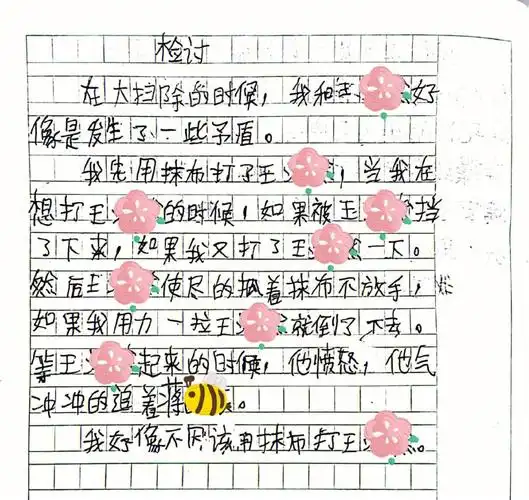 检讨
在大扫除的时候，我和王好
像是发生了一些矛盾。
我先用抹布打了王，当我在
想打王的时候，如果被王挡
了下来，如果我又打了王一下。
然后王使尽的抓着抹布不放手，
如果我用力一拉王就倒了下去。
等王起来的时候，他愤怒，他气
冲冲的追着蒋。
我好像不因该用抹布打王。